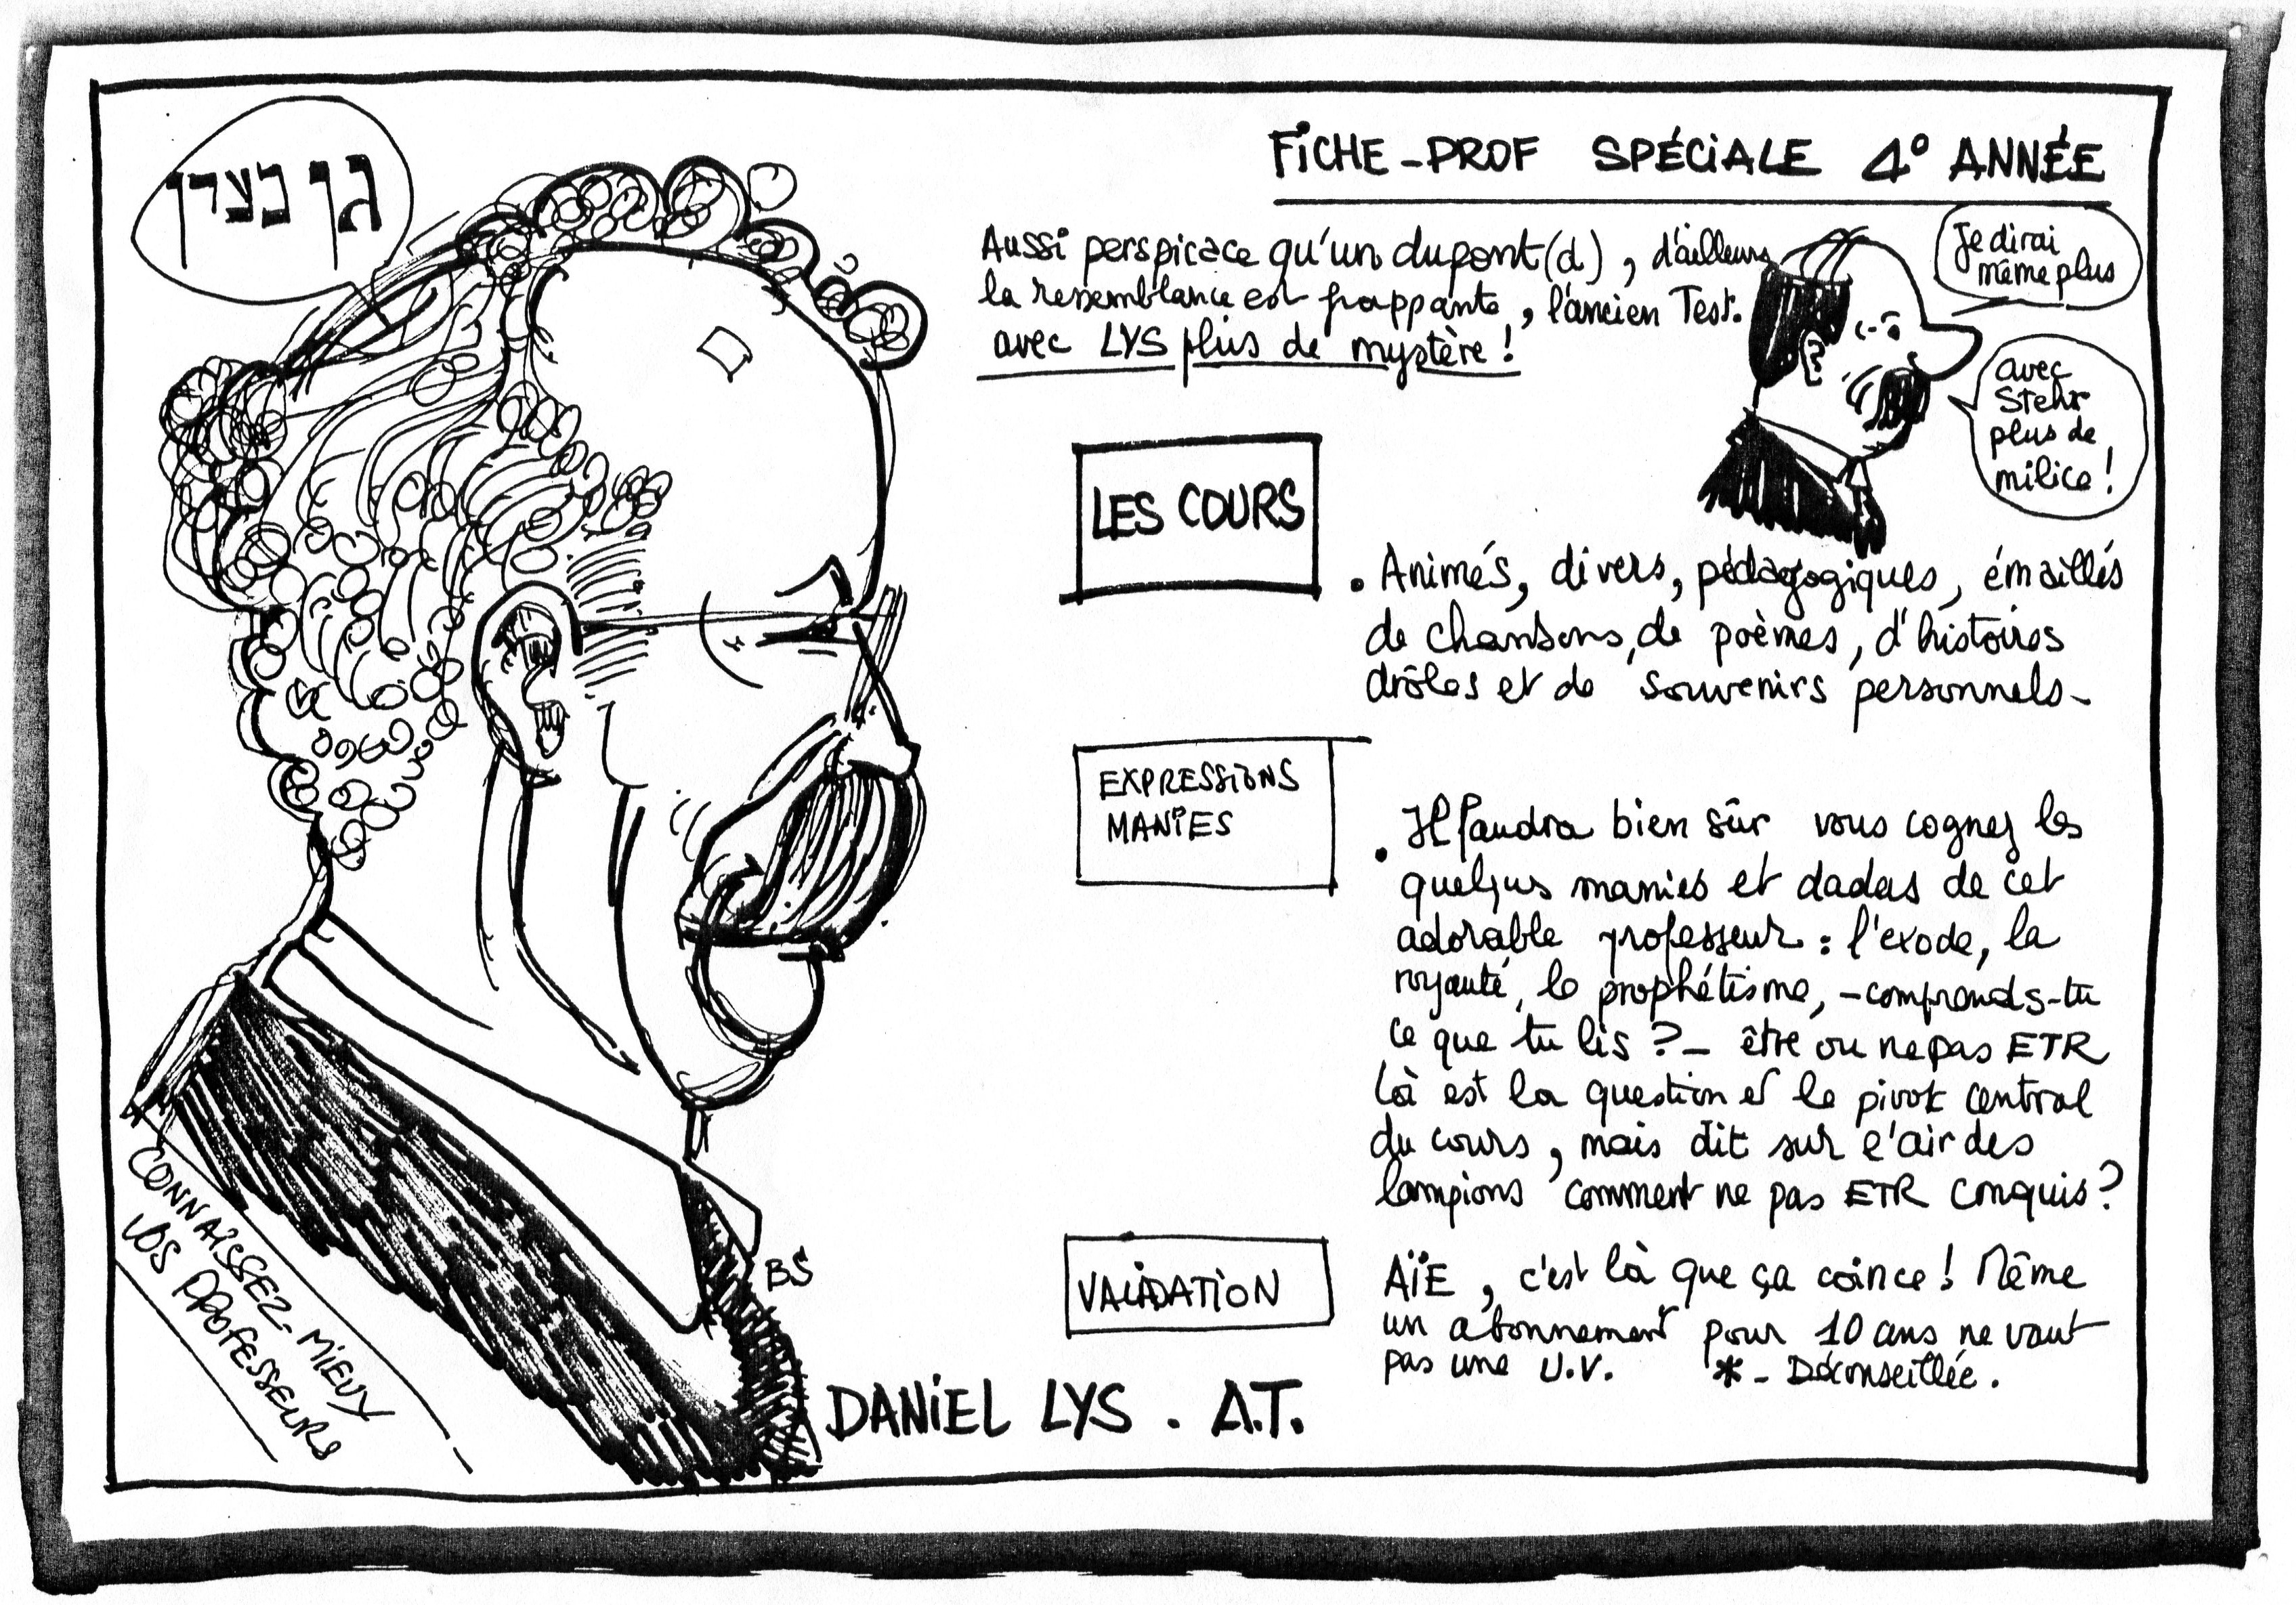 גן בעדן
FICHE-PROF SPÉCIALE 4° ANNÉE
Aussi perspicace qu'un dupont(d), d'ailleurs
la ressemblance est frappante, l'ancien Test.
avec LYS plus de mystère!
Je dirai
même plus
avec
Stehr
plus de
milice!
LES COURS
. Animés, divers, pédagogiques, émaillés
de chansons, de poèmes, d'histoires
drôles et de souvenirs personnels-
EXPRESSIONS
MANIES
. Il faudra bien sûr vous cognez les
quelques manies et dadas de cet
adorable professeur : l'exode, la
royauté, le prophétisme, -comprends-tu
ce que tu lis ?- être ou ne pas ETR
là est la question et le pivot central
du cours, mais dit sur l'air des
lampions comment ne pas ETR conquis?
VALIDATION
AÏE, c'est là que ça coince! Même
un abonnement pour 10 ans ne vaut
pas une U.V. *- Déconseillée.
BS
DANIEL LYS . A.T.
CONNAISSEZ-MIEUX
VOS PROFESSEURS